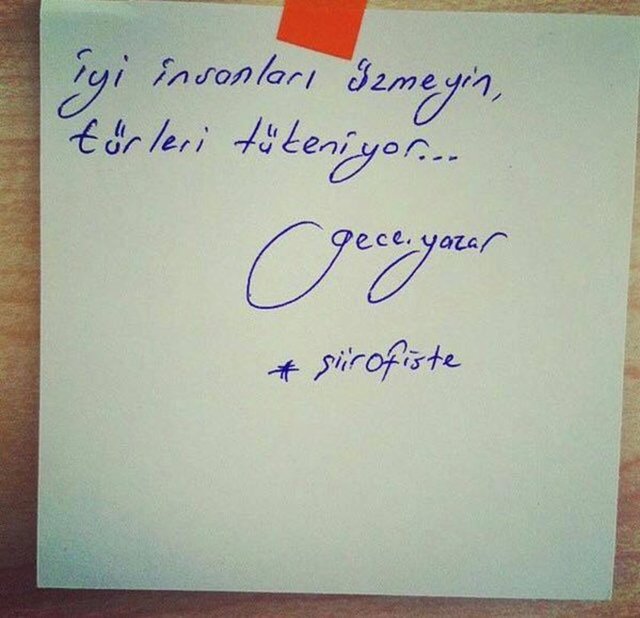 iyi insanları üzmeyin,
türleri tükeniyor...
gece.yazar
* şiirofiste